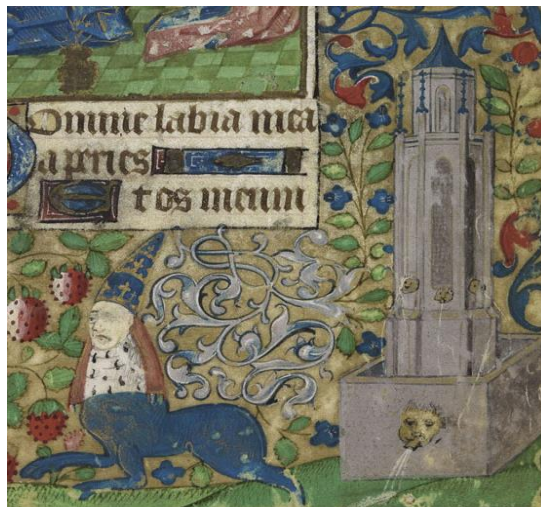 Omine labia mea
aperies
t os meum